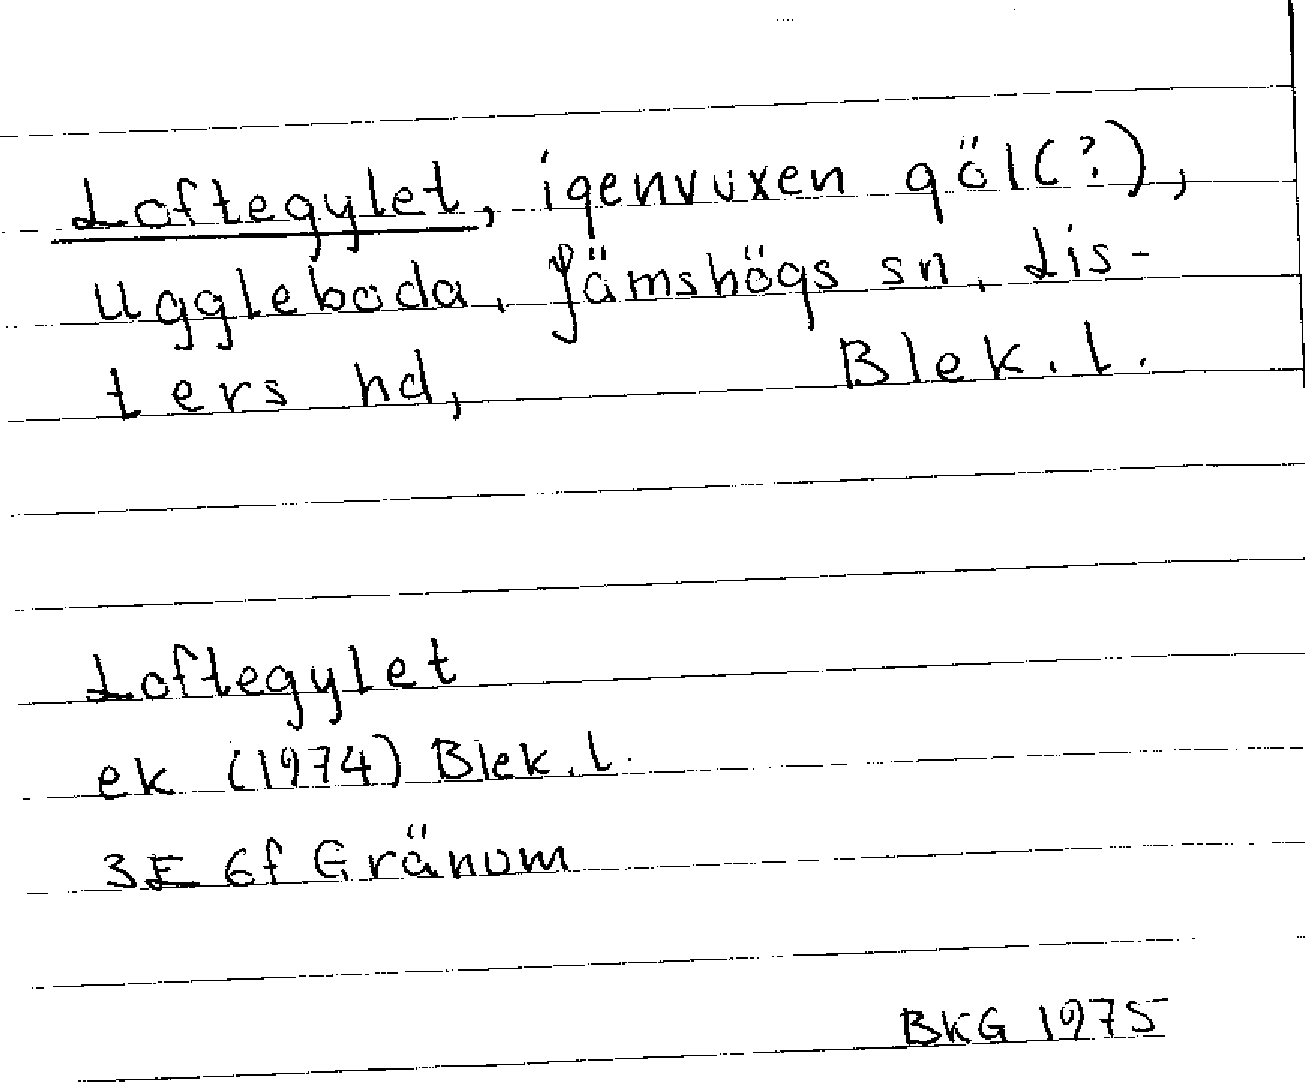 Loftegylet, igenvuxen göl(?),
Uggleboda, Jämshögs sn, Lis-
ters hd, Blek. l.
Loftegylet
ek (1974) Blek. l.
3E 6f Gränum
BKG 1975